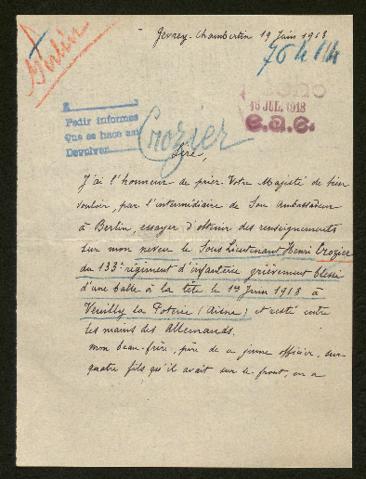 Gevrey-Chambertin 19 Juin 1918
Berlin
16 JUL. 1918
e.a.e.
Pedir informes
Que se hace así
Devolver
Crozier
Sire,
J'ai l'honneur de prier Votre Majesté de bien
vouloir, par l'intermédiaire de Son Ambassadeur
à Berlin, essayer d'obtenir des renseignements
sur mon neveu le Sous Lieutenant Henri Crozier
du 133e régiment d'infanterie grièvement blessé
d'une balle à la tête le 1er Juin 1918 à
Veuilly la Poterie (Aisne) et resté entre
les mains des Allemands.
Mon beau-frère, père de ce jeune officier, sur
quatre fils qu'il avait sur le front, en a